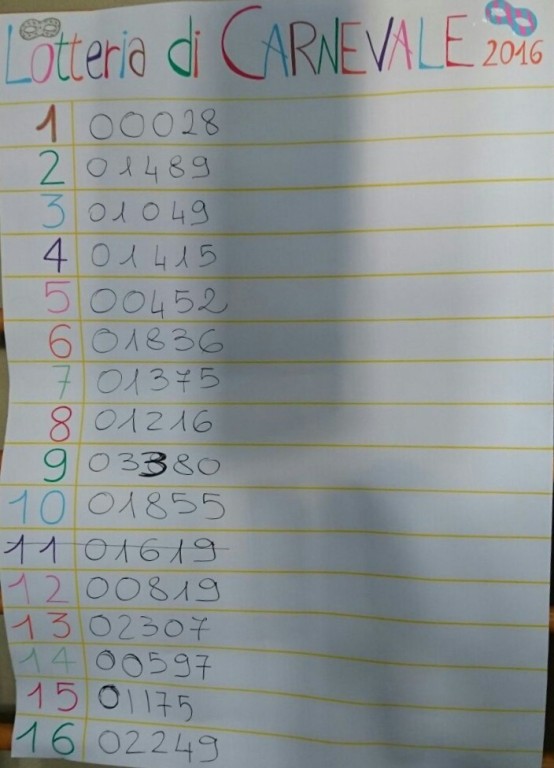 Lotteria di CARNEVALE 2016
1 00028
2 01489
3 01049
4 01415
5 00452
6 01836
7 01375
8 01216
9 03380
10 01855
11 01619
12 00819
13 02307
14 00597
15 01175
16 02249